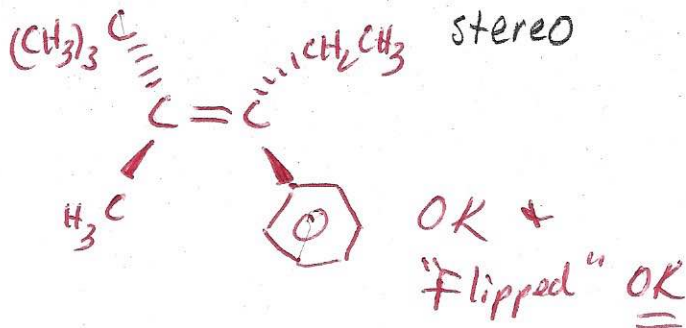 (CH₃)₃C CH₂CH₃ stereo
C = C
H₃C
OK +
"Flipped" OK